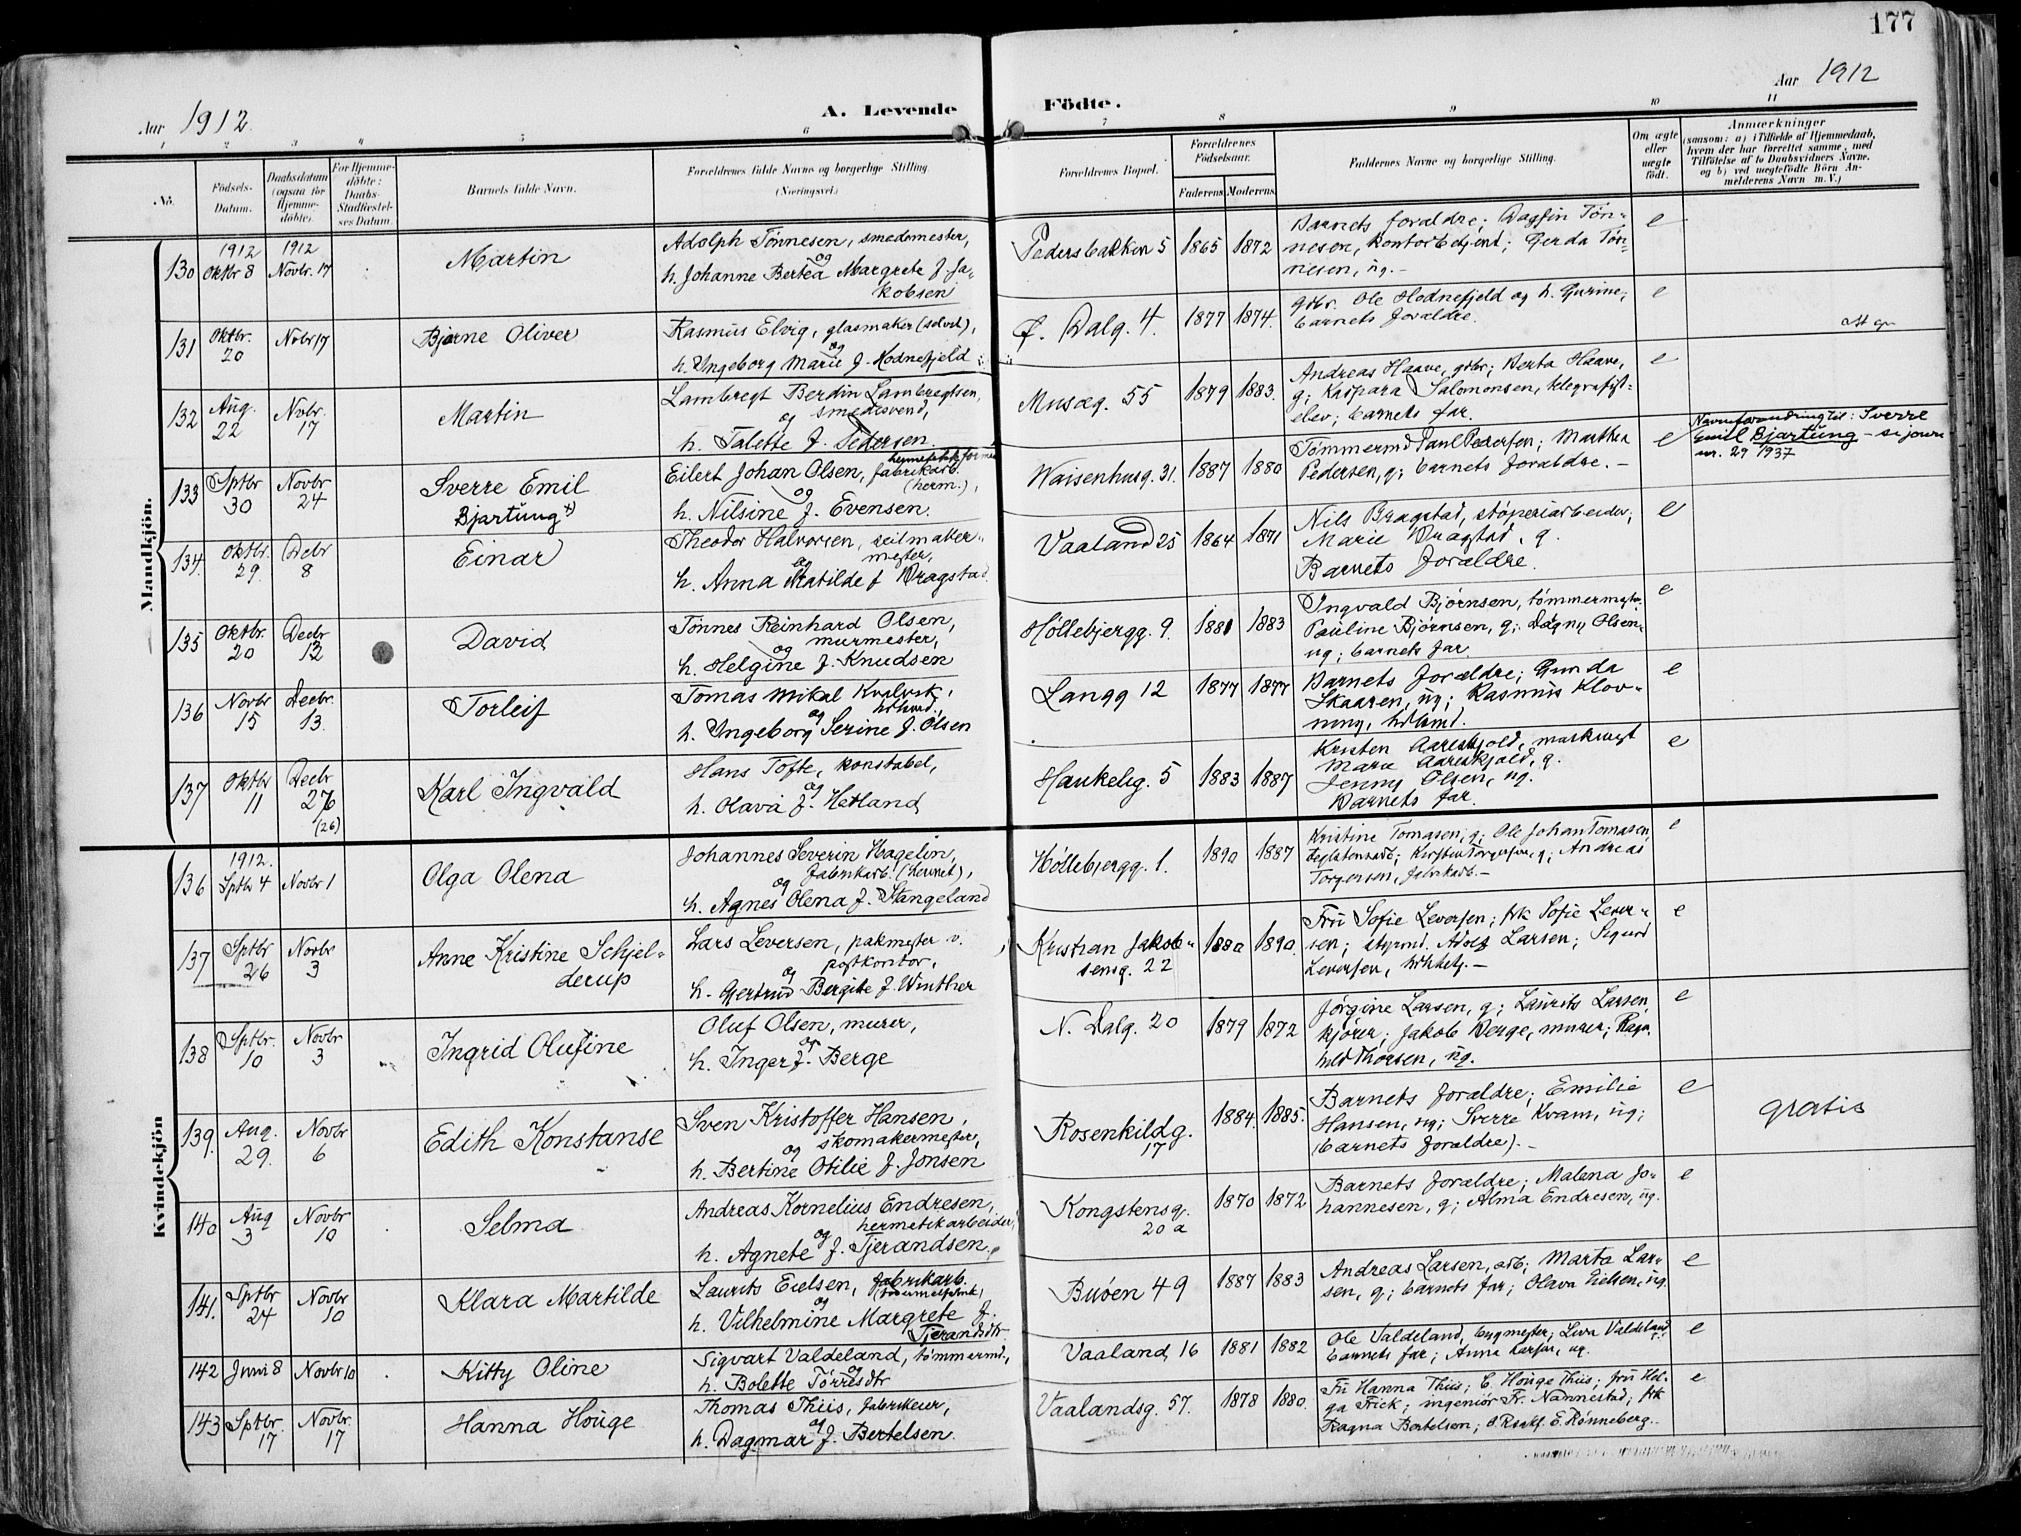 177
Aar 1912.
A. Levende
Födte.
Aar 1912
1 2 3 4 5 6 7 8 9 10 11
Nö.
Födsels-
Datum.
Daabsdatum
(ogsaa for
Hjemme-
döbte).
For Hjemme-
döbte:
Daabs-
Stadfæstel-
ses Datum.
Barnets fulde Navn.
Forældrenes fulde Navne og borgerlige Stilling.
(Næringsvei.)
Forældrenes Bopæl.
Forældrenes
Födselsaar.
Faderens. Moderens.
Faddernes Navne og borgerlige Stilling.
Om ægte
eller
uægte
födt.
Anmærkninger
(saasom: a) i Tilfælde af Hjemmedaab,
hvem der har forrettet samme, med
Tilföielse af to Daabsvidners Navne,
og b) ved uægtefödte Börn An-
melderens Navn m. V.)
Mandkjön.
130 1912 Oktbr 8 1912 Novbr. 17 Martin
Adolph Tønnesen, smedemester,
og
h. Johanne Bertea Margrete f. Ja-
kobsen
Pedersbakken 5 1865 1872
Barnets foraldre; Dagfin Tøn-
nesen, kontorbetjent; Gerda Tøn-
nesen, ug. -
e
131 Oktbr. 20 Nvbr 17 Bjarne Oliver
Rasmus Elvig, glasmaker (selvst),
og
h. Ingeborg Marie f. Hodnefjeld
Ø. Dalg. 4. 1877 1874.
gdbr. Ole Hodnefjeld og h. Gurine;
barnets foraldre.
e
132 Aug. 22 Nvbr. 17 Martin
Lambregt Berdin Lambregtsen,
og smedesvend,
h. Talette f. Pedersen.
Musæg. 55 1879 1883.
Andreas Haave, gdbr; Berta Haave,
g; Kaspara Salomonsen, telegrafist-
elev; barnets far.
e
133 Sptbr 30 Novbr 24 Sverre Emil
Bjartung x)
Eilert Johan Olsen, fabrikarb.
(herm.),
og
h. Nilsine f. Evensen.
Waisenhusg. 31. 1887 1880
Tømmermd Paul Pedersen; Marthea
Pedersen, g; barnets foraldre. -
e
Navneforandring til: Sverre
Emil Bjartung -
nr. 29 1937
134. Oktbr. 29. Dcbr 8 Einar
Theodor Halvorsen, seilmaker-
mester,
og
h. Anna Matilde f Bragstad
Vaaland 25 1864 1871
Nils Bragstad, støperiarbeider;
Marie Bragstad, g.
Barnets foraldre.
e
135 Oktbr. 20 Decbr 12 David
Tønnes Reinhard Olsen,
murmester,
og
h. Helgine f. Knudsen
Høllebjergg. 9. 1881 1883
Ingvald Bjørnsen, tømmermester
Pauline Bjørnsen, g; Dagny Olsen
ug; barnets far.
e
136 Novbr 15 Decbr. 13. Torleif
Tomas Mikal Kvalvik,
og
h. Ingeborg Serine f. Olsen
Langg 12 1877 1877
Barnets Foraldre; Gunda
Skaaren, ug; Rasmus Klov-
ning,
e
137 Oktbr 11 Decbr 26 (26) Karl Ingvald
Hans Tofte, konstabel,
og
h. Olava f. Hetland
Haukelig. 5 1883 1887
Kristen Aareskjold,
Marie Aareskjold, g.
Jenny Olsen, ug.
Barnets far.
e
Kvindekjön
136 1912. Sptbr 4 Novbr 1 Olga Olena
Johannes Severin Hagelin,
fabrikarb. (hermet),
og
h. Agnes Olena f. Stangeland
Høllebjergg. 1. 1890 1887
Kristine Tomasen, g; Ole Johan Tomasen,
Andreas
Torgersen, fabrikarb. -
e
137 Sptbr 26 Novbr 3 Anne Kristine Schjel-
derup
Lars Leversen, pakmester v.
postkontor,
og
h. Gjertrud Bergite f. Winther
Kristian Jakob-
sensg. 22
1880 1890.
Fru Sofie Leversen; frk Sofie Lever-
sen; styrmd. Adolf Larsen; Sigurd
Leversen, -
e
138 Sptbr. 10 Novbr 3 Ingrid Olufine
Oluf Olsen, murer,
og
h. Inger f. Berge
N. Dalg. 20 1879 1872
Jørgine Larsen, g; Laurits Larsen,
kjører; Jakob Berge, murer; Ragn-
hild Thorsen, ug.
e
139. Aug. 29. Novbr 6 Edith Konstanse
Sven Kristoffer Hansen,
skomakermester,
og
h. Bertine Otilie f. Jonsen
Rosenkildg.
17
1884. 1885.
Barnets foraldre; Emilie
Hansen, ug; Sverre Kvam, ug;
(barnets foraldre). -
e
gratis
140 Aug 3 Novbr 10 Selma
Andreas Kornelius Endresen,
hermetikarbeider,
og
h. Agnete f. Tjerandsen.
Kongstensg.
20 a
1870 1872
Barnets foraldre; Malena Jo-
hannesen, g; Alma Endresen, ug.
e
141. Sptbr 24 Novbr 10 Klara Martilde
Laurits Eielsen, fabrikarb.
og
h. Vilhelmine Margrete f.
Tjerandsdtr.
Buøen 49 1887 1883
Andreas Larsen, arb; Marta Lar-
sen, g; barnets far; Olava Eielsen, ug
e
142 Juni 8 Novbr 10 Kitty Oline
Sigvart Valdeland, tømmermd.,
og
h. Bolette Tørresdtr
Vaaland 16 1881 1882
Ole Valdeland, bygmester; Lina Valdeland
barnets far; Anna Larsen, ug.
e
143 Sptbr. 17 Novbr. 17 Hanna Houge
Thomas Thiis, fabrikeier,
og
h. Dagmar f. Bertelsen.
Vaalandsg. 57. 1878 1880.
Fru Hanna Thiis; C. Houge Thiis; fru Hel-
ga Frick; ingeniør Fr. Nannestad; frk
Ragna Bertelsen; E. Rønneberg.
e